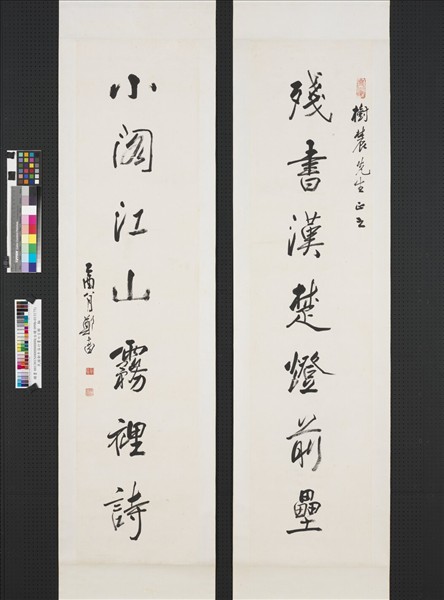 樹農先生正之
殘書漢楚燈前壘
小閣江山霧裡詩